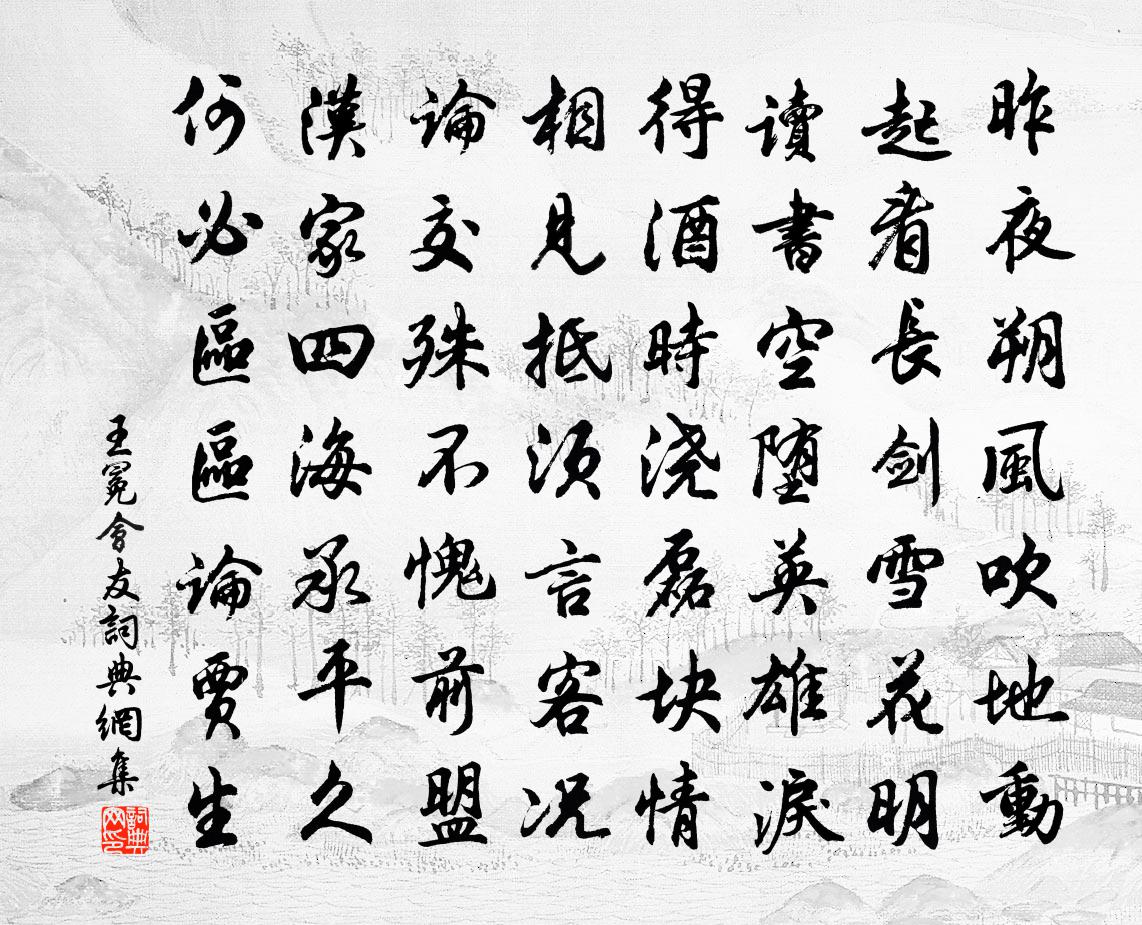 昨夜朔風吹地動
起看長劍雪花明
讀書空墮英雄淚
得酒時澆磊块情
相見抵须言客況
論交殊不愧前盟
漢家四海承平久
何必區區論賈生
王冕會友詞典網集
詞典網印